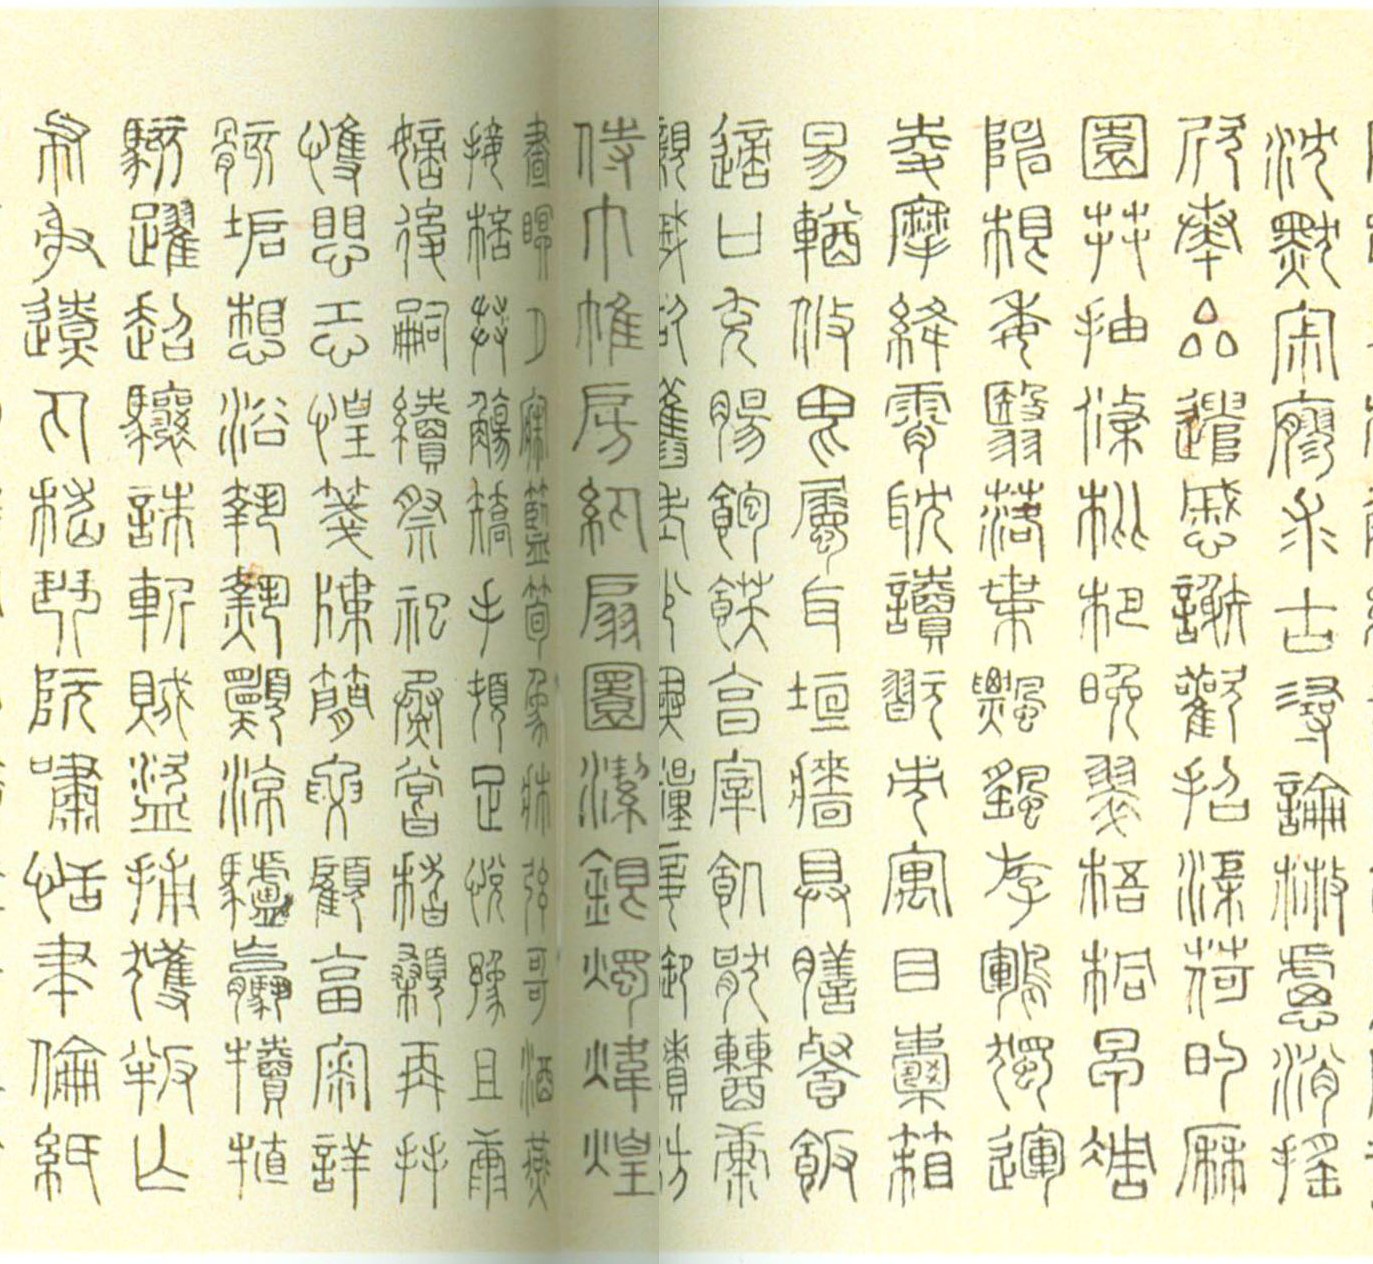 沈默寂寥求古尋論散慮逍遙
欣奏累遣慼謝歡招渠荷的歷
園莽抽條枇杷晚翠梧桐早凋
陳根委翳落葉飄颻游鵾獨運
凌摩絳霄耽讀翫市寓目囊箱
易輶攸畏屬耳垣牆具膳餐飯
適口充腸飽飫亨宰飢厭糟糠
親戚故舊老少異糧妾御績紡
侍巾帷房紈扇圓潔銀燭煒煌
晝眠夕寐藍筍象牀弦歌酒讌
接杯舉觴矯手頓足悅豫且康
嫡後嗣續祭祀蒸嘗稽顙再拜
悚懼恐惶箋牒簡要顧答審詳
骸垢想浴執熱願涼驢騾犢特
駭躍超驤誅斬賊盜捕獲叛亡
布射遼丸嵇琴阮嘯恬筆倫紙